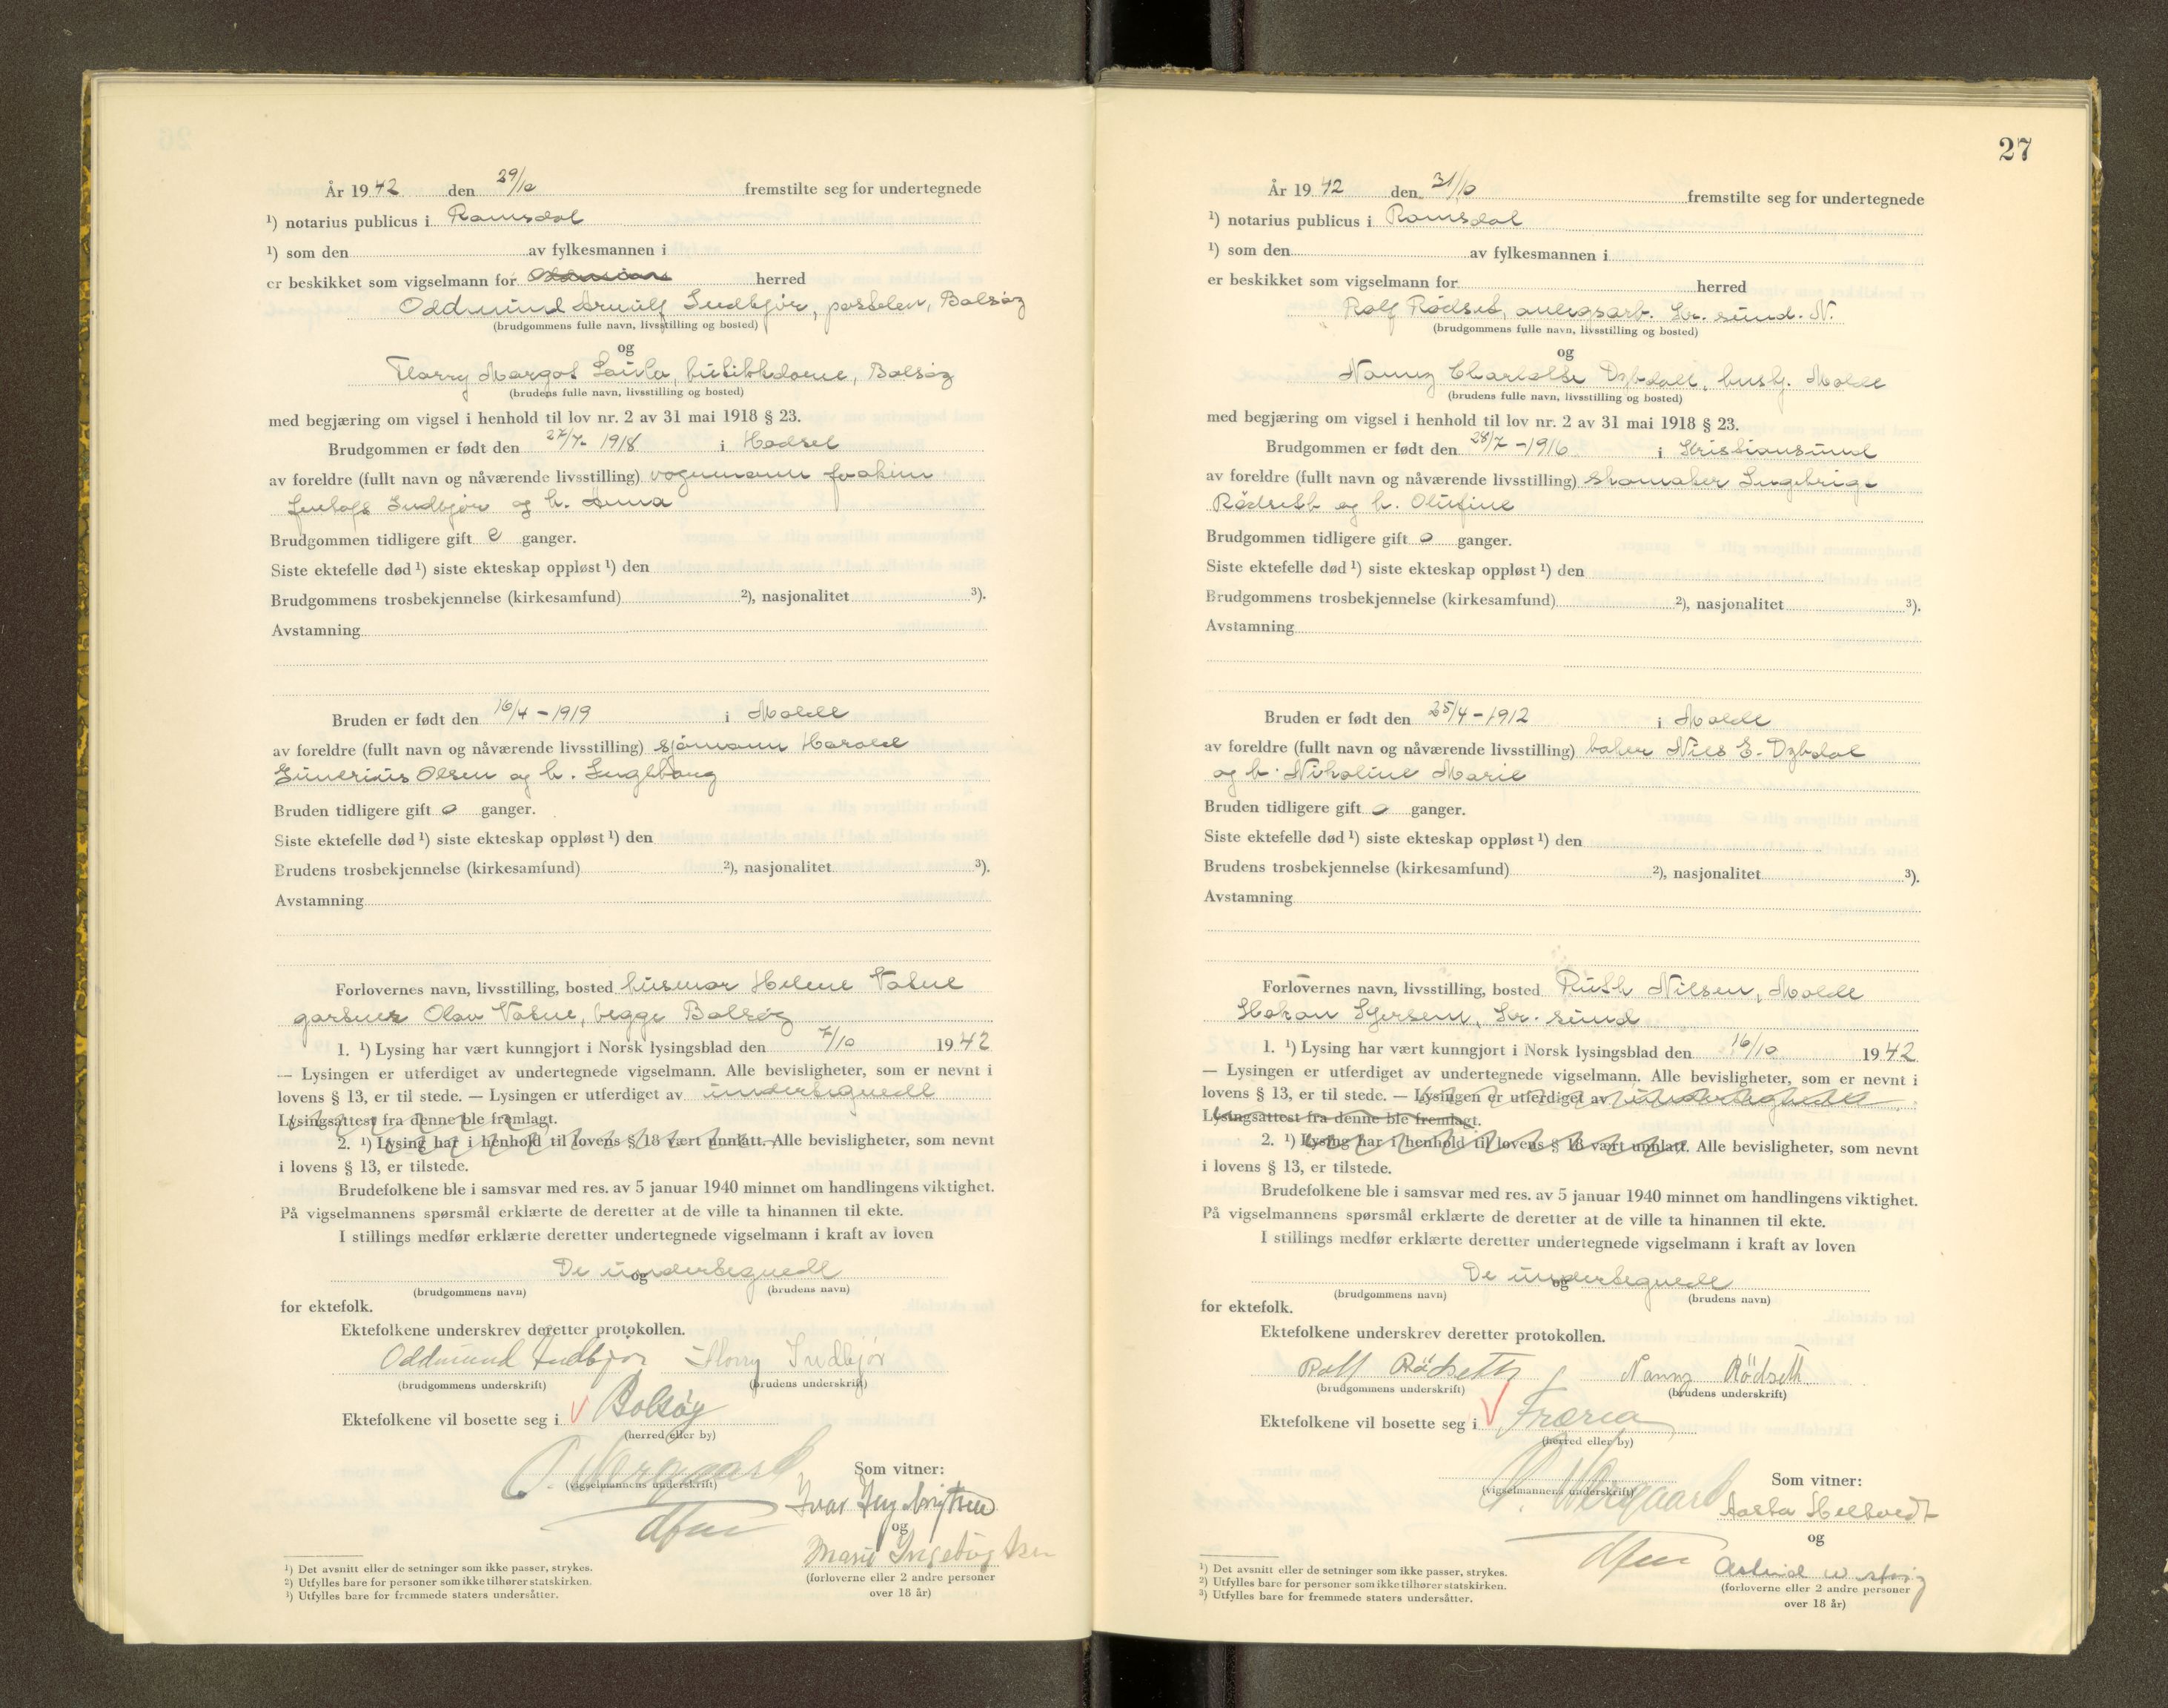 År 19 42 den 29/10 fremstilte seg for undertegnede
¹) notarius publicus i Romsdal
¹) som den av fylkesmannen i
er beskikket som vigselmann for herred
Oddmund Arnulf Indbjør, postelev, Bolsøy
(brudgommens fulle navn, livsstilling og bosted)
og
Harry Margot Laula, butikkdame, Bolsøy
(brudens fulle navn, livsstilling og bosted)
med begjæring om vigsel i henhold til lov nr. 2 av 31 mai 1918 § 23.
Brudgommen er født den 27/7- 1918 i Hadsel
av foreldre (fullt navn og nåværende livsstilling) vognmann Joakim
Jentoft Indbjør og h. Anna
Brudgommen tidligere gift 0 ganger.
Siste ektefelle død ¹) siste ekteskap oppløst ¹) den
Brudgommens trosbekjennelse (kirkesamfund) ²), nasjonalitet ³).
Avstamning
Bruden er født den 16/4 - 1919 i Molde
av foreldre (fullt navn og nåværende livsstilling) sjømann Harald
Gunerius Olsen og h. Ingeborg
Bruden tidligere gift 0 ganger.
Siste ektefelle død ¹) siste ekteskap oppløst ¹) den
Brudens trosbekjennelse (kirkesamfund) ²), nasjonalitet ³).
Avstamning
Forlovernes navn, livsstilling, bosted husmor Helene Vatne
gartner Olav Vatne, begge Bolsøy
1. ¹) Lysing har vært kunngjort i Norsk lysingsblad den 7/10 19 42
— Lysingen er utferdiget av undertegnede vigselmann. Alle bevisligheter, som er nevnt i
lovens § 13, er til stede. — Lysingen er utferdiget av undertegnede
Lysingsattest fra denne ble fremlagt.
2. ¹) Lysing har i henhold til lovens § 18 vært unnlatt. Alle bevisligheter, som nevnt
i lovens § 13, er tilstede.
Brudefolkene ble i samsvar med res. av 5 januar 1940 minnet om handlingens viktighet.
På vigselmannens spørsmål erklærte de deretter at de ville ta hinannen til ekte.
I stillings medfør erklærte deretter undertegnede vigselmann i kraft av loven
De undertegnede
og
(brudgommens navn) (brudens navn)
for ektefolk.
Ektefolkene underskrev deretter protokollen.
Oddmund Indbjør Harry Indbjør
(brudgommens underskrift) (brudens underskrift)
Ektefolkene vil bosette seg i Bolsøy
(herred eller by)
Som vitner:
(vigselmannens underskrift)
Ivar Ingebrigtsen
og
Marie Ingebrigtsen
(forloverne eller 2 andre personer
over 18 år)
¹) Det avsnitt eller de setninger som ikke passer, strykes.
²) Utfylles bare for personer som ikke tilhører statskirken.
³) Utfylles bare for fremmede staters undersåtter.
27
År 19 42 den 31/10 fremstilte seg for undertegnede
¹) notarius publicus i Romsdal
¹) som den av fylkesmannen i
er beskikket som vigselmann for herred
Rolf Rødseth, anlegsarb. Kr. sund. N.
(brudgommens fulle navn, livsstilling og bosted)
og
Nanny Charlotte Dybdal, husbj. Molde
(brudens fulle navn, livsstilling og bosted)
med begjæring om vigsel i henhold til lov nr. 2 av 31 mai 1918 § 23.
Brudgommen er født den 28/7 - 1916 i Kristiansund
av foreldre (fullt navn og nåværende livsstilling) skomaker Ingebrigt
Rødseth og h. Olufine
Brudgommen tidligere gift 0 ganger.
Siste ektefelle død ¹) siste ekteskap oppløst ¹) den
Brudgommens trosbekjennelse (kirkesamfund) ²), nasjonalitet ³).
Avstamning
Bruden er født den 25/4 - 1912 i Molde
av foreldre (fullt navn og nåværende livsstilling) baker Nils E. Dybdal
og h. Nikoline Marie
Bruden tidligere gift 0 ganger.
Siste ektefelle død ¹) siste ekteskap oppløst ¹) den
Brudens trosbekjennelse (kirkesamfund) ²), nasjonalitet ³).
Avstamning
Forlovernes navn, livsstilling, bosted Ruth Nilsen, Molde
Håkon Kr. sund
1. ¹) Lysing har vært kunngjort i Norsk lysingsblad den 16/10 19 42
— Lysingen er utferdiget av undertegnede vigselmann. Alle bevisligheter, som er nevnt i
lovens § 13, er til stede. — Lysingen er utferdiget av undertegnede
Lysingsattest fra denne ble fremlagt.
2. ¹) Lysing har i henhold til lovens § 18 vært unnlatt. Alle bevisligheter, som nevnt
i lovens § 13, er tilstede.
Brudefolkene ble i samsvar med res. av 5 januar 1940 minnet om handlingens viktighet.
På vigselmannens spørsmål erklærte de deretter at de ville ta hinannen til ekte.
I stillings medfør erklærte deretter undertegnede vigselmann i kraft av loven
De undertegnede
og
(brudgommens navn) (brudens navn)
for ektefolk.
Ektefolkene underskrev deretter protokollen.
Rolf Rødseth Nanny Rødseth
(brudgommens underskrift) (brudens underskrift)
Ektefolkene vil bosette seg i Fræna
(herred eller by)
Som vitner:
(vigselmannens underskrift)
Aasta
og
Astrid
(forloverne eller 2 andre personer
over 18 år)
¹) Det avsnitt eller de setninger som ikke passer, strykes.
²) Utfylles bare for personer som ikke tilhører statskirken.
³) Utfylles bare for fremmede staters undersåtter.